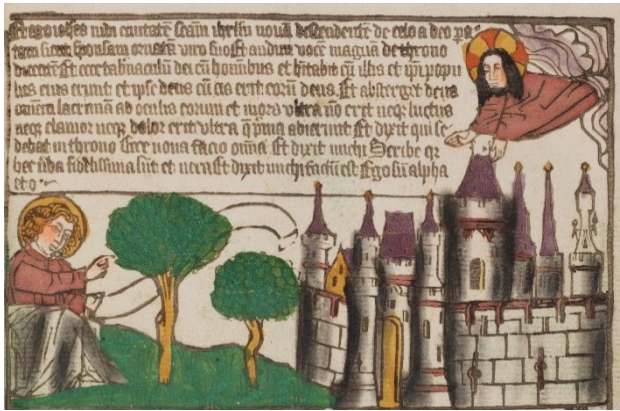 Et ego iohēs vidi ciuitatē scām ihrlm̄ nouā descendentē de celo a deo pa
tam sicut sponsam ornatā viro suo Et audiui vocē magnā de throno
dicentē Et ecce tabnaculū dei cū hoīnibus et hitabit cū illis et ipi popu
lus eius erunt et ipse deus cū eis erit eorū deus Et absterget deus
omnem lacrimā ab oculis eorum et mors vltra nō erit neqꝫ luctus
neqꝫ clamor neqꝫ dolor erit vltra q̄ pͥma abierunt Et dixit qui se
debat in throno Ecce noua facio om̄ia Et dixit michi Scribe qr
hec v̄ba fidelissima sūt et uera Et dixit michi factū est Ego sū alpha
et o